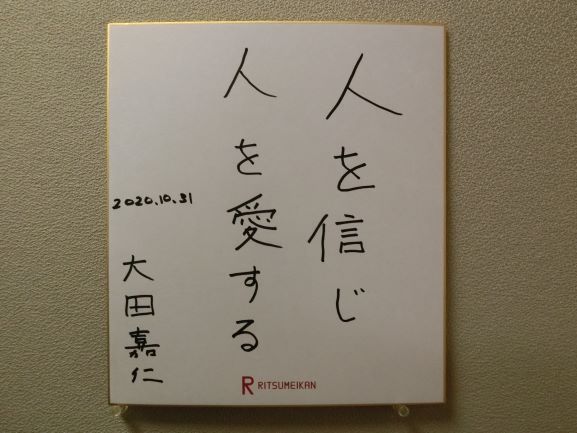 人を信じ
人を愛する
2020.10.31
大田嘉仁
R RITSUMEIKAN